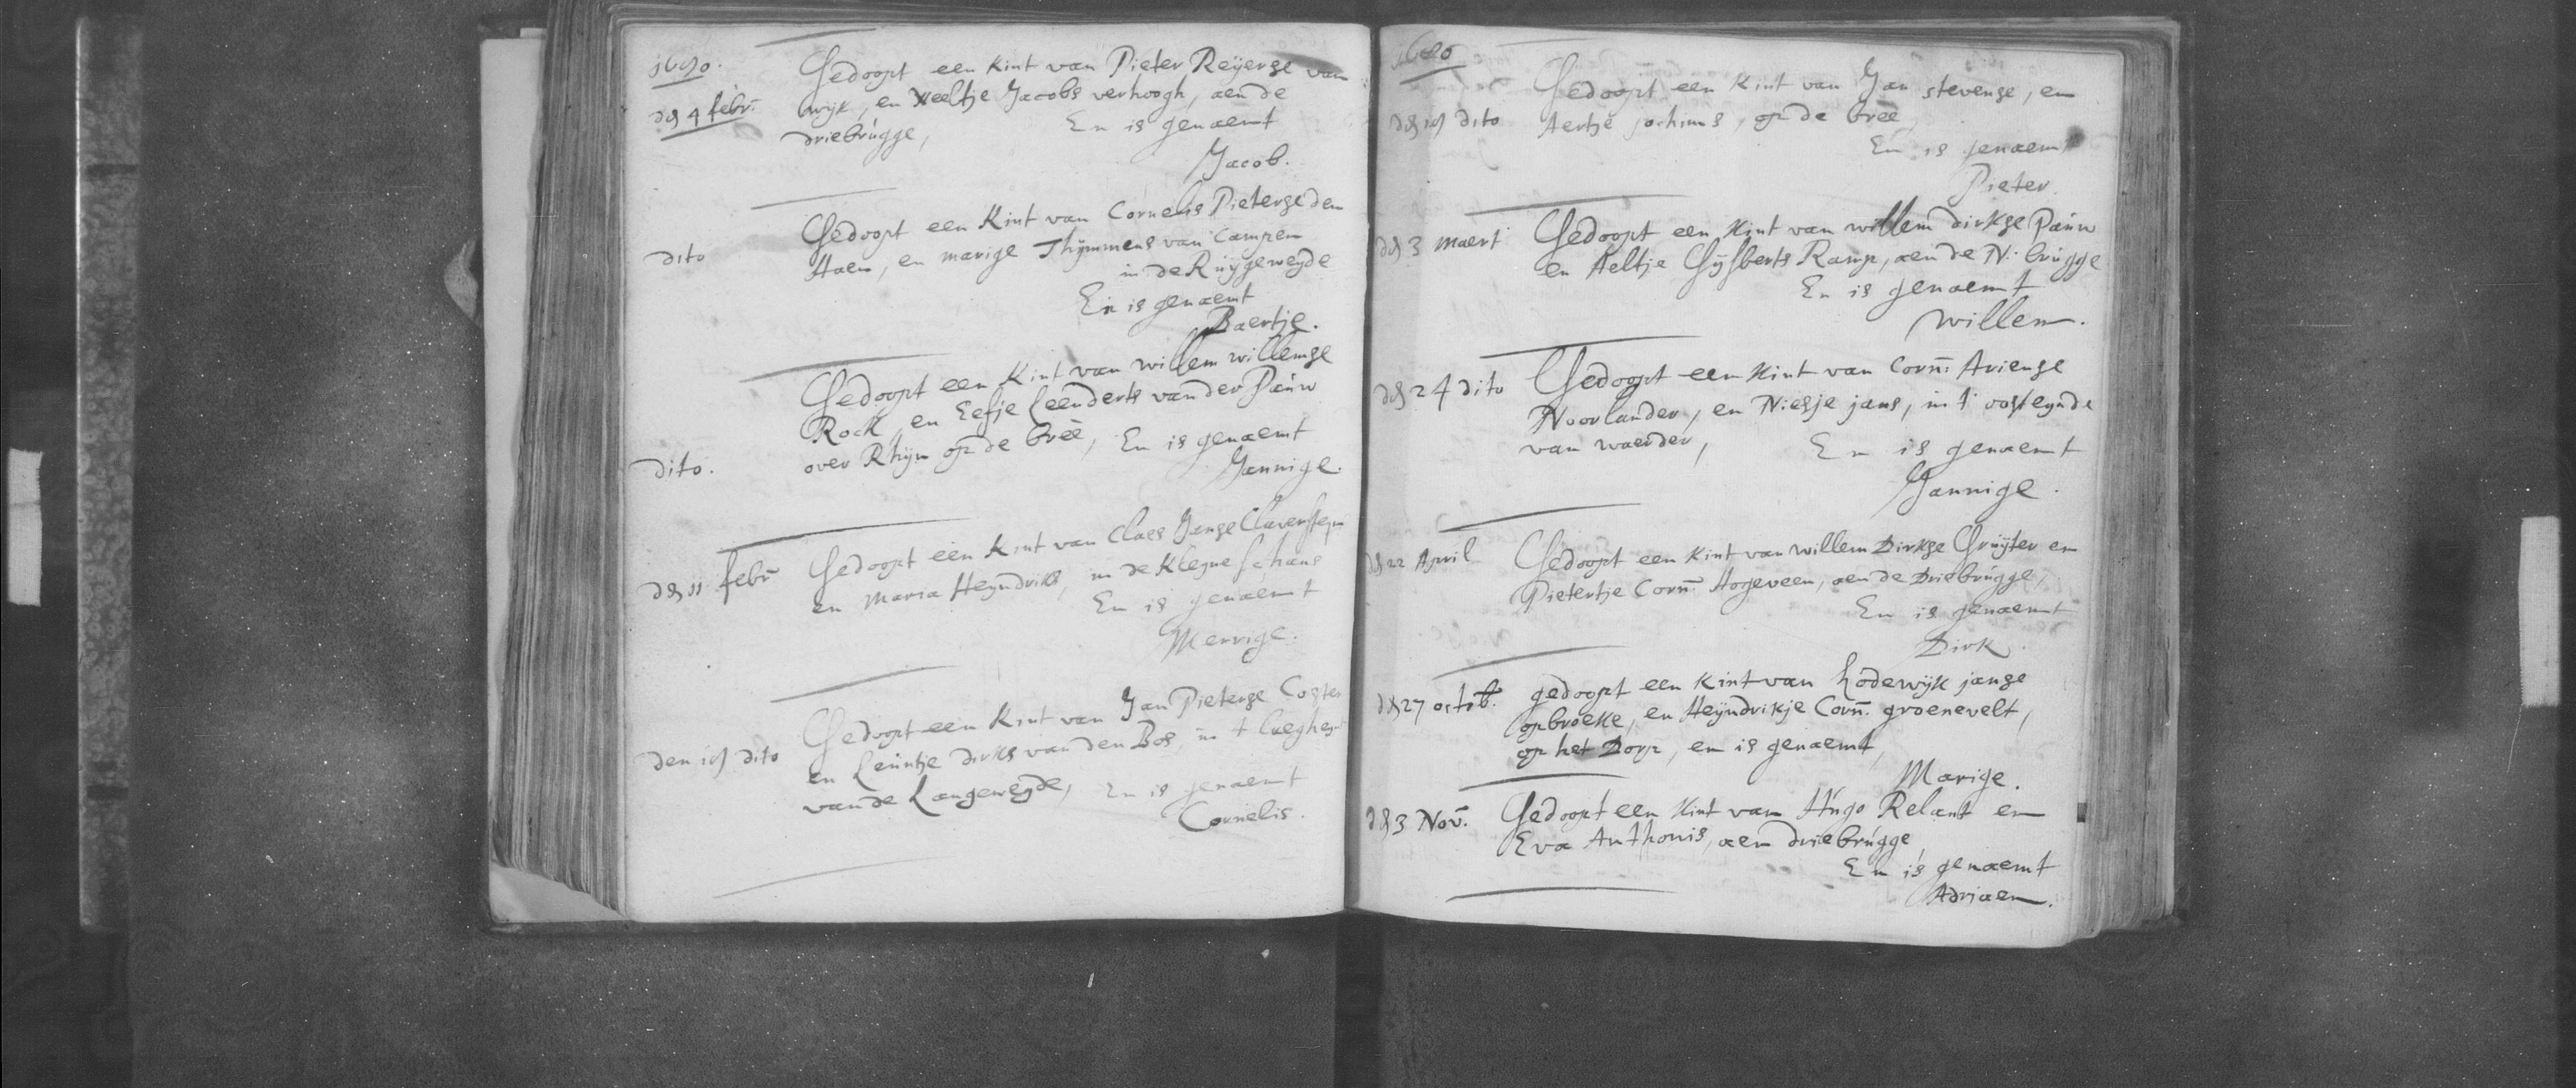 1680.
den 4 febr. Gedoopt een kint van Pieter Reijerse van
wijk, en Neeltje Jacobs verhoogh, aen de
driebrugge, En is genaemt
Jacob.
dito Gedoopt een Kint van Cornelis Pieterse den
Haen, en marige Thijmmens van Campen
in de Ruijgeweyde
En is genaemt
Baertje.
Gedoopt een Kint van willem willemse
Rock, en Eefje Leenderts vander Pauw
dito. over Rhijn op de breè, En is genaemt
Jannige.
den 11 febr. Gedoopt een Kint van Claes Janse Claversteijn
en Maria Heyndriks, in de Kleyne schans
En is genaemt
Merrige.
Gedoopt een Kint van Jan Pieterse Coster
den 18 dito en Leuntje dirks van den Bos, in t laegheyn
vande Langeweyde, En is genaemt
Cornelis.
1680
Gedoopt een Kint van Jan stevense, en
den 18 dito Aertje jochims, op de breè
En is genaemt
Pieter.
den 3 maert Gedoopt een Kint van willem dirkse Pauw
en Aeltje Gijsberts Ramp, aen de N: brugge
En is genaemt
willem.
den 24 dito Gedoopt een Kint van Corn: Ariense
Noorlander, en Niesje jans, in t' oosteynde
van waerder, En is genaemt
Jannige.
den 22 April Gedoopt een Kint van willem Dirkse Gruijter en
Pietertje Corn: Hogeveen, aen de Driebrugge,
En is genaemt
Dirk.
den 27 octob. gedoopt een Kint van Lodewijk janse
opbroeke, en Heijndrikje Corn. groenevelt,
op het Dorp, en is genaemt,
Marige.
den 3 Nov. Gedoopt een Kint van Hugo Relant en
Eva Anthonis, aen driebrugge,
En is genaemt
Adriaen.